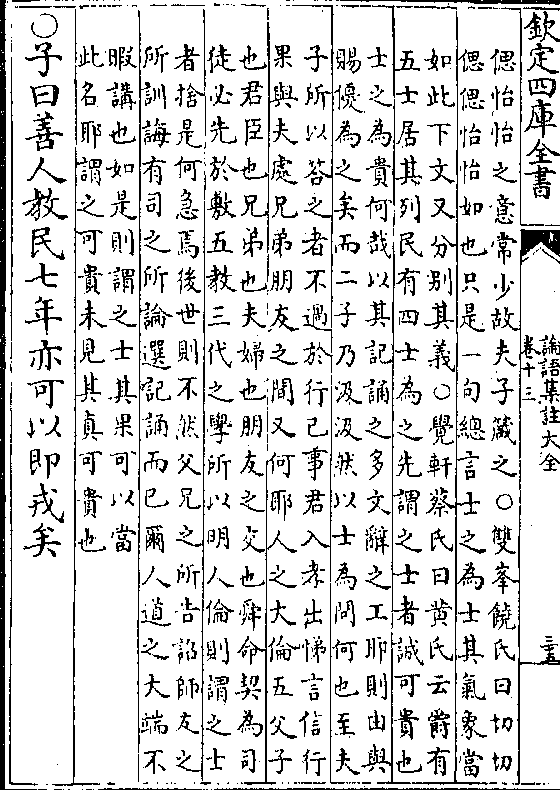 欽定四庫全書
論語集註大全
卷十三
三五
偲怡怡之意常少故夫子箴之○雙峯饒氏曰切切
偲偲怡怡如也只是一句總言士之為士其氣象當
如此下文又分別其義○覺軒蔡氏曰黄氏云爵有
五士居其列民有四士為之先謂之士者誠可貴也
士之為貴何哉以其記誦之多文辭之工耶則由與
賜優為之矣而二子乃汲汲然以士為問何也至夫
子所以答之者不過於行己事君入孝出悌言信行
果與夫處兄弟朋友之間又何耶人之大倫五父子
也君臣也兄弟也夫婦也朋友之交也舜命契為司
徒必先於敷五教三代之學所以明人倫則謂之士
者捨是何急焉後世則不然父兄之所告詔師友之
所訓誨有司之所論選記誦而已爾人道之大端不
暇講也如是則謂之士其果可以當
此名耶謂之可貴未見其真可貴也
○子曰善人教民七年亦可以即戎矣